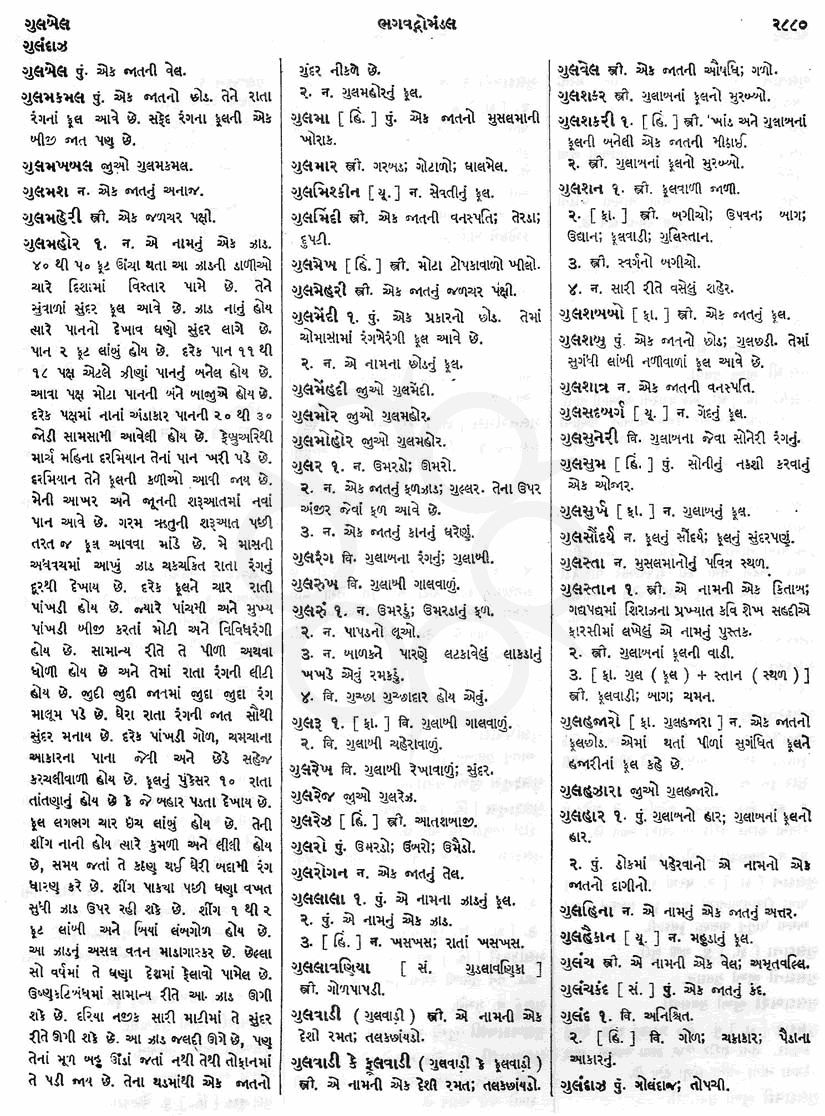 ગુલબેલ
ભગવદ્ગોમંડલ
૨૮૮૦
ગુલંદાઝ
ગુલબેલ પું. એક જાતની વેલ.
ગુલમકમલ પું. એક જાતનો છોડ. તેને રાતા
રંગનાં ફૂલ આવે છે. સફેદ રંગના ફૂલની એક
બીજી જાત પણ છે.
ગુલમખમલ જુઓ ગુલમકમલ.
ગુલમશ ન. એક જાતનું અનાજ.
ગુલમહેરી સ્ત્રી. એક જળચર પક્ષી.
ગુલમહોર ૧. ન. એ નામનું એક ઝાડ.
૪૦ થી ૫૦ ફૂટ ઊંચા થતા આ ઝાડની ડાળીઓ
ચારે દિશામાં વિસ્તાર પામે છે. તેને
સુંવાળાં સુંદર ફૂલ આવે છે. ઝાડ નાનું હોય
ત્યારે પાનનો દેખાવ ઘણો સુંદર લાગે છે.
પાન ૨ ફૂટ લાંબું હોય છે. દરેક પાન ૧૧ થી
૧૮ પક્ષ એટલે ઝીણાં પાનનું બનેલ હોય છે.
આવા પક્ષ મોટા પાનની બંને બાજુએ હોય છે.
દરેક પક્ષમાં નાનાં અંડાકાર પાનની ૨૦ થી ૩૦
જોડી સામસામી આવેલી હોય છે. ફેબ્રુઅરિથી
માર્ચ મહિના દરમિયાન તેનાં પાન ખરી પડે છે.
દરમિયાન તેને ફૂલની કળીઓ આવી જાય છે.
મેની આખર અને જૂનની શરૂઆતમાં નવાં
પાન આવે છે. ગરમ ઋતુની શરૂઆત પછી
તરત જ ફૂલ આવવા માંડે છે. મે માસની
અધવચમાં આખું ઝાડ ચકચકિત રાતા રંગનું
દૂરથી દેખાય છે. દરેક ફૂલને ચાર રાતી
પાંખડી હોય છે. જ્યારે પાંચમી અને મુખ્ય
પાંખડી બીજી કરતાં મોટી અને વિવિધરંગી
હોય છે. સામાન્ય રીતે તે પીળી અથવા
ધોળી હોય છે અને તેમાં રાતા રંગની લીટી
હોય છે. જુદી જુદી જાતમાં જુદા જુદા રંગ
માલૂમ પડે છે. ઘેરા રાતા રંગની જાત સૌથી
સુંદર મનાય છે. દરેક પાંખડી ગોળ, ચમચાના
આકારના પાના જેવી અને છેડે સહેજ
કરચલીવાળી હોય છે. ફૂલનું પુંકેસર ૧૦ રાતા
તાંતણાનું હોય છે કે જે બહાર પડતા દેખાય છે.
ફૂલ લગભગ ચાર ઇંચ લાંબું હોય છે. તેની
શીંગ નાની હોય ત્યારે કુમળી અને લીલી હોય
છે, સમય જતાં તે કઠણ થઈ ઘેરી બદામી રંગ
ધારણ કરે છે. શીંગ પાક્યા પછી ઘણા વખત
સુધી ઝાડ ઉપર રહી શકે છે. શીંગ ૧ થી ૨
ફૂટ લાંબી અને બિયાં લંબગોળ હોય છે.
આ ઝાડનું અસલ વતન માડાગાસ્કર છે. છેલ્લા
સો વર્ષમાં તે ઘણા દેશમાં ફેલાવો પામેલ છે.
ઉષ્ણકટિબંધમાં સામાન્ય રીતે આ ઝાડ ઊગી
શકે છે. દરિયા નજીક સારી માટીમાં તે સુંદર
રીતે ઊગી શકે છે. આ ઝાડ જલદી ઊગે છે, પણ
તેનાં મૂળ બહુ ઊંડાં જતાં નથી તેથી તોફાનમાં
તે પડી જાય છે. તેના થડમાંથી એક જાતનો
ગુંદર નીકળે છે.
૨. ન. ગુલમહોરનું ફૂલ.
ગુલમા [ હિં. ] પું. એક જાતનો મુસલમાની
ખોરાક.
ગુલમાર સ્ત્રી. ગરબડ; ગોટાળો; ઘાલમેલ.
ગુલમિશ્કીન [ યૂ. ] ન. સેવતીનું ફૂલ.
ગુલમિંદી સ્ત્રી. એક જાતની વનસ્પતિ; તેરડા;
દુપટી.
ગુલમેખ [ હિં. ] સ્ત્રી. મોટા ટોપકાવાળો ખીલો.
ગુલમેહરી સ્ત્રી. એક જાતનું જળચર પંક્ષી.
ગુલમેંદી ૧. પું. એક પ્રકારનો છોડ. તેમાં
ચોમાસામાં રંગબેરંગી ફૂલ આવે છે.
૨. ન. એ નામના છોડનું ફૂલ.
ગુલમેંહદી જુઓ ગુલમેંદી.
ગુલમોર જુઓ ગુલમહોર.
ગુલમોહોર જુઓ ગુલમહોર.
ગુલર ૧. ન. ઉમરડો; ઊમરો.
૨. ન. એક જાતનું ફળઝાડ; ગુલ્લર. તેના ઉપર
અંજીર જેવાં ફળ આવે છે.
૩. ન. એક જાતનું કાનનું ઘરેણું.
ગુલરંગ વિ. ગુલાબના રંગનું; ગુલાબી.
ગુલરુખ વિ. ગુલાબી ગાલવાળું.
ગુલરું ૧. ન. ઉમરડું; ઉમરડાનું ફળ.
૨. ન. પાપડનો લૂઓ.
૩. ન. બાળકને પારણે લટકાવેલું લાકડાનું
ખખડે એવું રમકડું.
૪. વિ. ગુચ્છા ગુચ્છાદાર હોય એવું.
ગુલરૂ ૧. [ ફા. ] વિ. ગુલાબી ગાલવાળું.
૨. વિ. ગુલાબી ચહેરાવાળું.
ગુલરેખ વિ. ગુલાબી રેખાવાળું; સુંદર.
ગુલરેજ જુઓ ગુલરેઝ.
ગુલરેઝ [ હિં. ] સ્ત્રી. આતશબાજી.
ગુલરો પું. ઉમરડો; ઉંબરો; ઉમૈડો.
ગુલરોગન ન. એક જાતનું તેલ.
ગુલલાલા ૧. પું. એ નામના ઝાડનું ફૂલ.
૨. પું. એ નામનું એક ઝાડ.
૩. [ હિં. ] ન. ખસખસ; રાતાં ખસખસ.
ગુલલાવણિયા [ સં. ગુડલાવણિકા ]
સ્ત્રી. ગોળપાપડી.
ગુલવાડી ( ગુલવાડી ) સ્ત્રી. એ નામની એક
દેશી રમત; તલકછાંયડો.
ગુલવાડી કે ફૂલવાડી ( ગુલવાડી કે ફૂલવાડી )
સ્ત્રી. એ નામની એક દેશી રમત; તલકછાંયડો.
ગુલવેલ સ્ત્રી. એક જાતની ઔષધિ; ગળો.
ગુલશકર સ્ત્રી. ગુલાબનાં ફૂલનો મુરબ્બો.
ગુલશકરી ૧. [ હિં. ] સ્ત્રી. ખાંડ અને ગુલાબનાં
ફૂલની બનેલી એક જાતની મીઠાઈ.
૨. સ્ત્રી. ગુલાબનાં ફૂલનો મુરબ્બો.
ગુલશન ૧. સ્ત્રી. ફૂલવાળી જાળી.
૨. [ ફા. ] સ્ત્રી. બગીચો; ઉપવન; બાગ;
ઉદ્યાન; ફૂલવાડી; ગુલિસ્તાન.
૩. સ્ત્રી. સ્વર્ગનો બગીચો.
૪. ન. સારી રીતે વસેલું શહેર.
ગુલશબખો [ ફા. ] સ્ત્રી. એક જાતનું ફૂલ.
ગુલશબુ પું. એક જાતનો છોડ; ગુલછડી. તેમાં
સુગંધી લાંબી નળીવાળાં ફૂલ આવે છે.
ગુલશાત્ર ન. એક જાતની વનસ્પતિ.
ગુલસદબર્ગ [ યૂ. ] ન. ગેંદનું ફૂલ.
ગુલસુનેરી વિ. ગુલાબના જેવા સોનેરી રંગનું.
ગુલસુમ [ હિં. ] પું. સોનીનું નકશી કરવાનું
એક ઓજાર.
ગુલસુર્ખ [ ફા. ] ન. ગુલાબનું ફૂલ.
ગુલસૌંદર્ય ન. ફૂલનું સૌંદર્ય; ફૂલનું સુંદરપણું.
ગુલસ્તા ન. મુસલમાનોનું પવિત્ર સ્થળ.
ગુલસ્તાન ૧. સ્ત્રી. એ નામની એક કિતાબ;
ગદ્યપદ્યમાં શિરાઝના પ્રખ્યાત કવિ શેખ સાદીએ
ફારસીમાં લખેલું એ નામનું પુસ્તક.
૨. સ્ત્રી. ગુલાબનાં ફૂલની વાડી.
૩. [ ફા. ગુલ ( ફૂલ ) + સ્તાન ( સ્થળ ) ]
સ્ત્રી. ફૂલવાડી; બાગ; ચમન.
ગુલહજારો [ ફા. ગુલહજારા ] ન. એક જાતનો
ફૂલછોડ. એમાં થતાં પીળાં સુગંધિત ફૂલને
હજારીનાં ફૂલ કહે છે.
ગુલહઝારા જુઓ ગુલહજારો.
ગુલહાર ૧. પું. ગુલાબનો હાર; ગુલાબનાં ફૂલનો
હાર.
૨. પું. ડોકમાં પહેરવાનો એ નામનો એક
જાતનો દાગીનો.
ગુલહિના ન. એ નામનું એક જાતનું અત્તર.
ગુલહૈકાન [ યૂ. ] ન. મહુડાનું ફૂલ.
ગુલંચ સ્ત્રી. એ નામની એક વેલ; અમૃતવલ્લિ.
ગુલંચકંદ [ સં. ] પું. એક જાતનું કંદ.
ગુલંદ ૧. વિ. અનિશ્ચિત.
૨. [ હિં. ] વિ. ગોળ; ચક્રાકાર; પૈડાના
આકારનું.
ગુલંદાઝ પું. ગોલંદાજ; તોપચી.